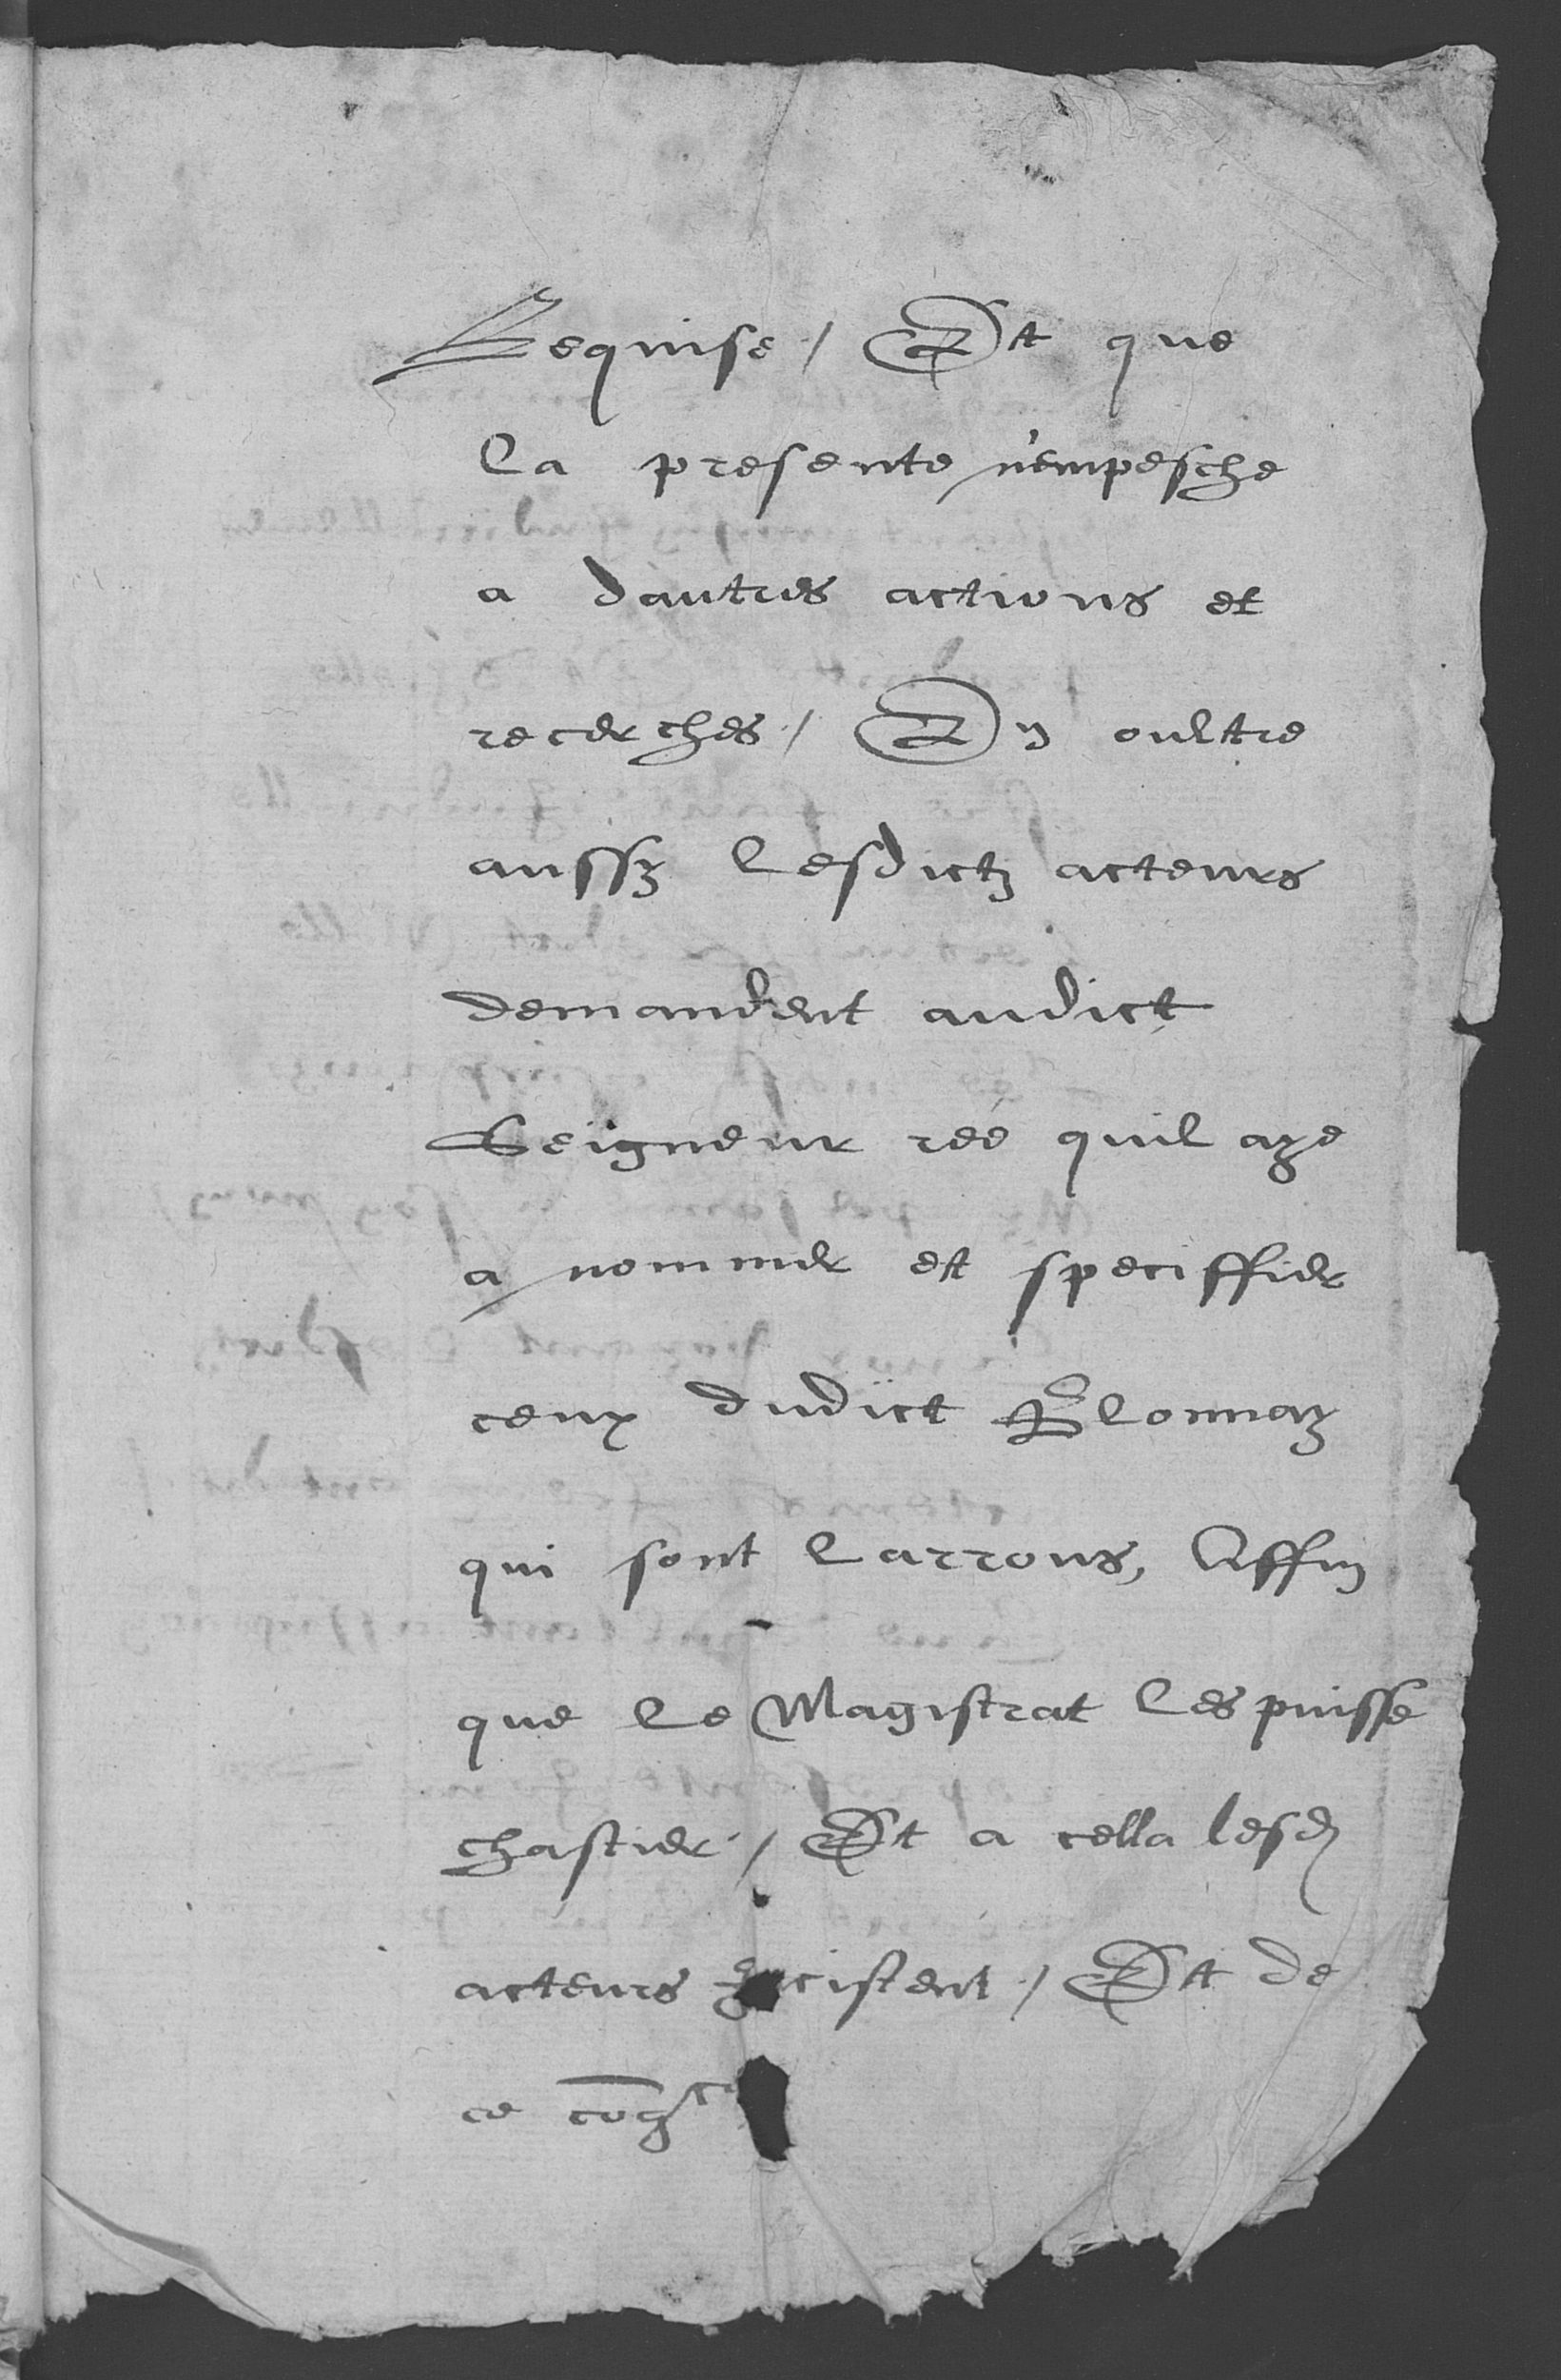 Requise / Et que
la presente n'empesche
a dautres actions et
recerches / En oultre
aussy lesdictz acteurs
demandent audict
Seigneur reé quil aye
a nommer et speciffier
ceux dudict Blonnay
qui sont larrons, Affin
que le Magistrat les puisse
chastier / Et a cella lesd
acteurs / Et de
ce